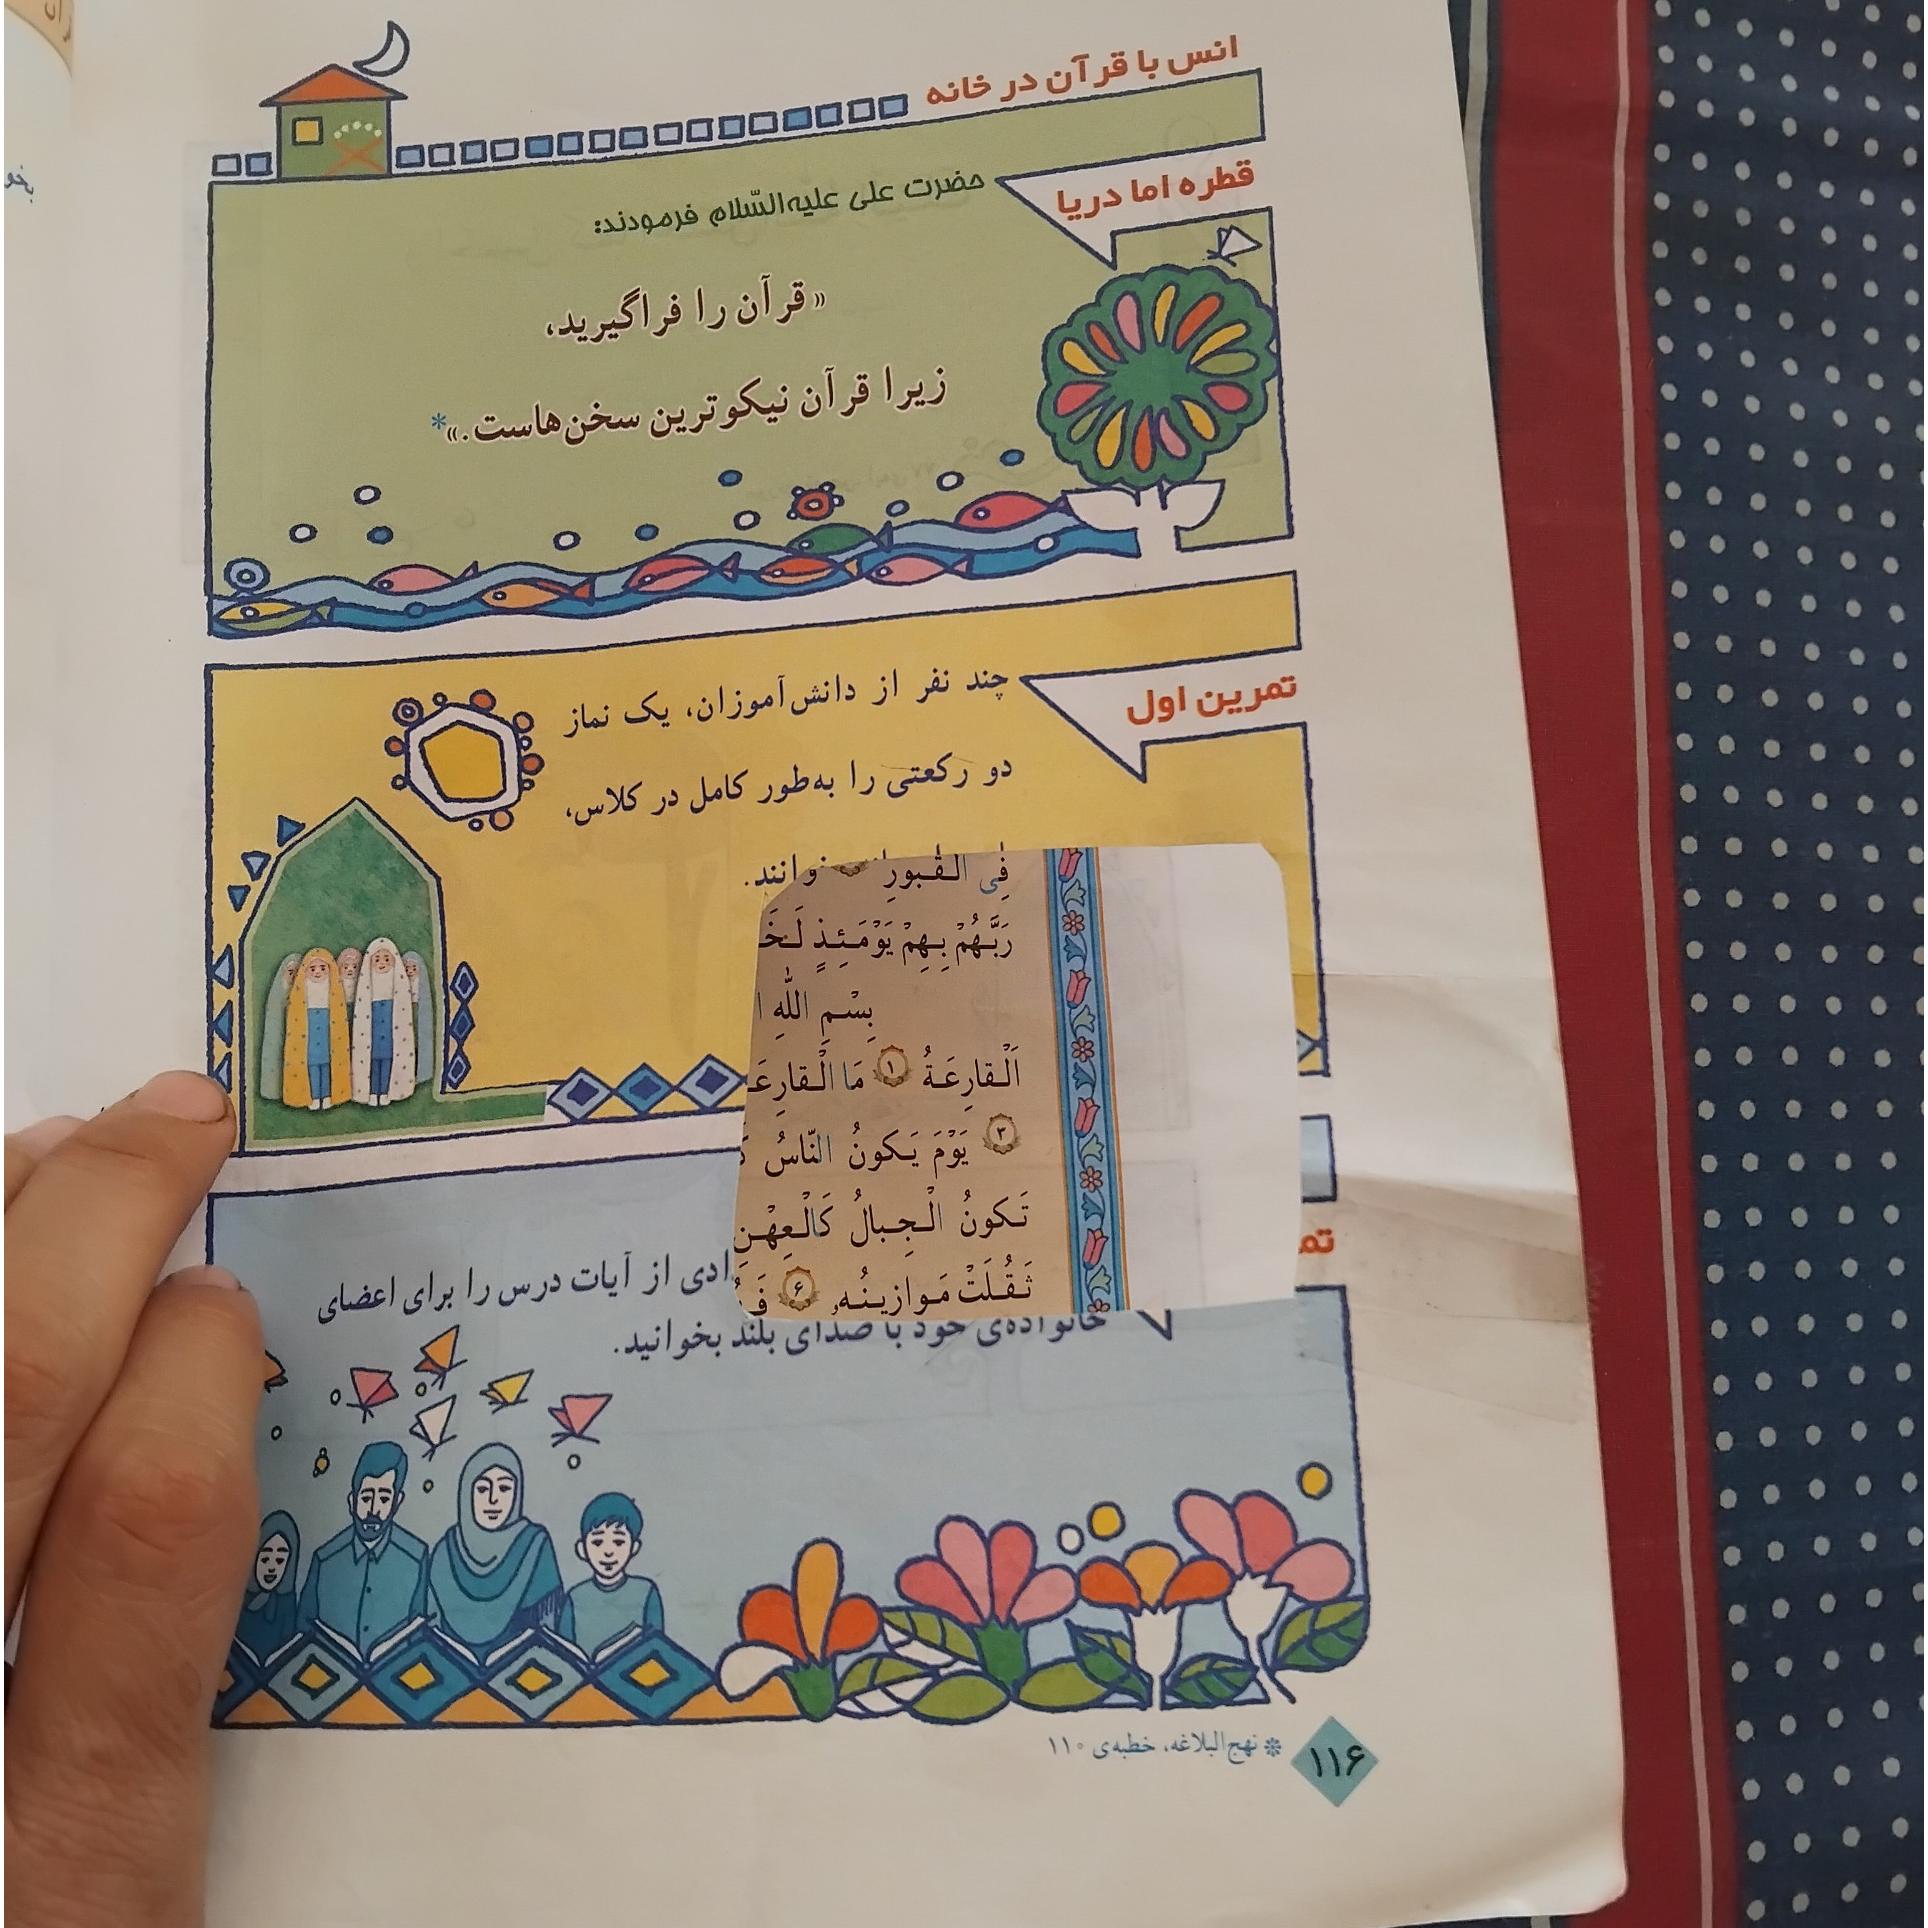 انس با قرآن در خانه
قطره اما دریا
حضرت علی علیه‌السّلام فرمودند:
« قرآن را فراگیرید،
زیرا قرآن نیکوترین سخن‌هاست.»*
تمرین اول
چند نفر از دانش‌آموزان، یک نماز
دو رکعتی را به‌طور کامل در کلاس،
فِی الْقُبورِ
رَبَّهُمْ بِهِمْ یَوْمَئِذٍ
بِسْمِ اللّٰهِ
اَلْقارِعَةُ ﴿۱﴾ مَا
﴿۳﴾ یَوْمَ یَکونُ النّاسُ
تَکونُ الْجِبالُ کَالْعِهْنِ
ثَقُلَتْ مَوازینُهُ ﴿۶﴾
از آیات درس را برای اعضای
خانواده‌ی خود با صدای بلند بخوانید.
* نهج‌البلاغه، خطبه‌ی ۱۱۰
۱۱۶